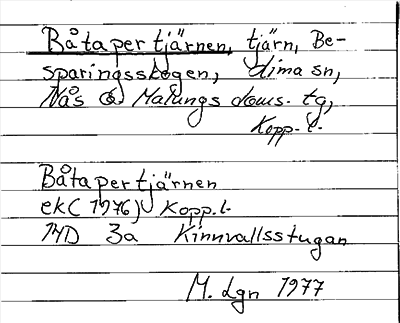 Båtapertjärnen, tjärn, Be-
sparingsskogen, Lima sn,
Nås & Malungs doms. tg,
Kopp. l.
Båtapertjärnen
ek (1976) Kopp. l.
14D 3a Kinnvallsstugan
M. Lgn 1977